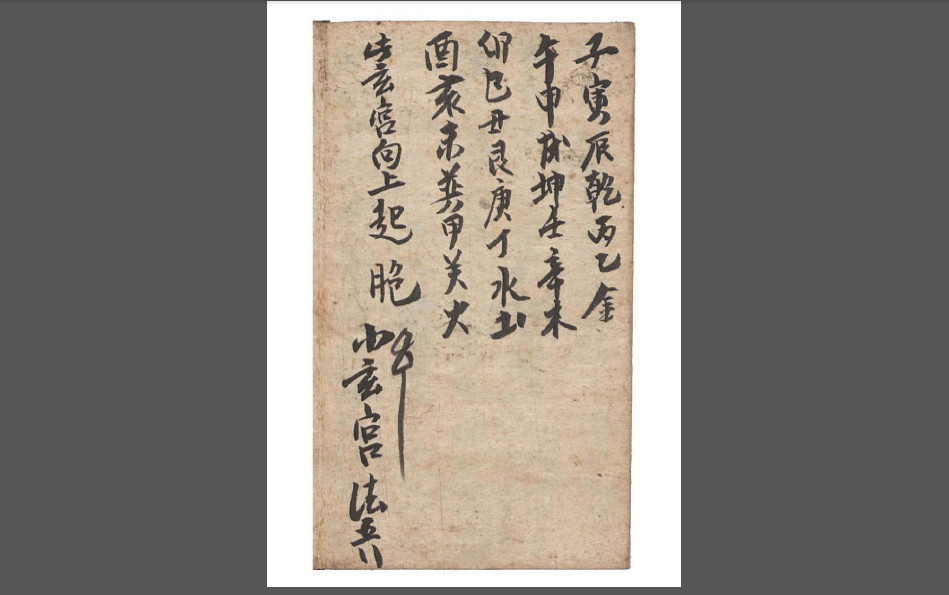 子寅辰乾丙乙金
午申戌坤壬辛木
卯巳丑艮庚丁水土
酉亥未巽甲癸火
此玄宮向上起胞
小玄宮法五行